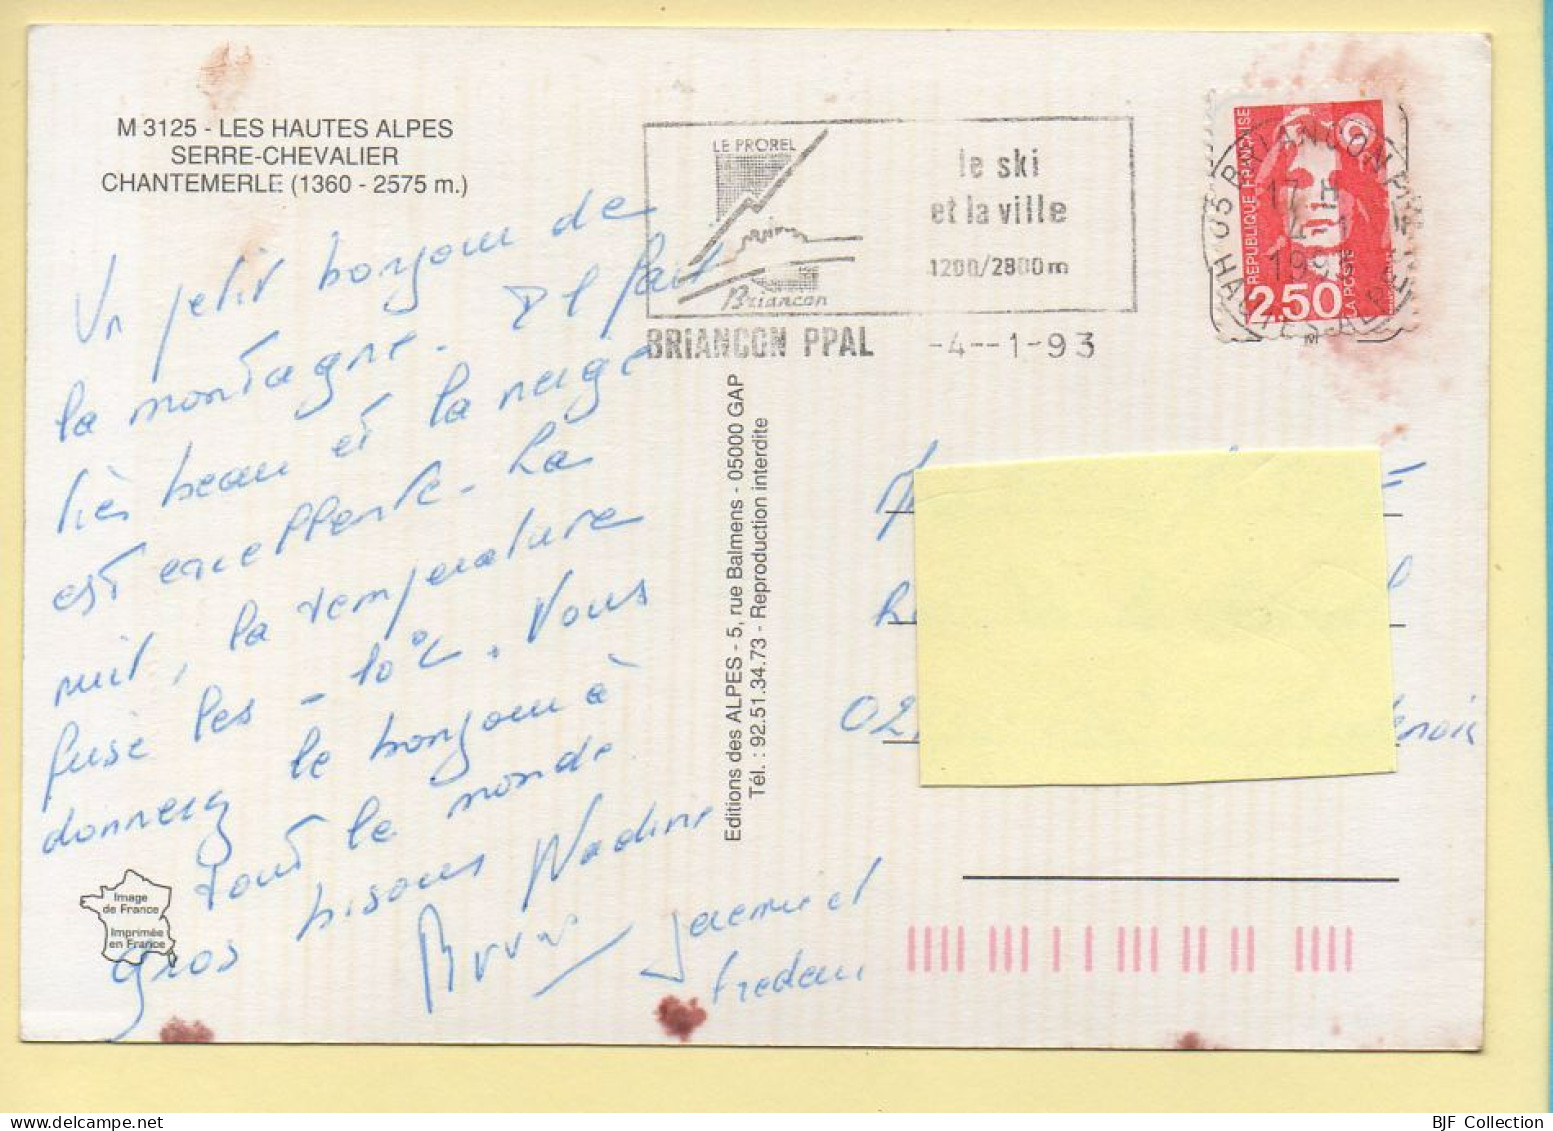 M 3125 - LES HAUTES ALPES
SERRE-CHEVALIER
CHANTEMERLE (1360 - 2575 m.)
Un petit bonjour de
la montagne. Il fait
très beau et la neige
est excellente - La
nuit, la température
fuse les - 10°C. Vous
donnerez le bonjour à
tout le monde.
Gros bisous Nadine
Bruno Jeremie et
Frederic
Image
de France
Imprimée
en France
Editions des ALPES - 5, rue Balmens - 05000 GAP
Tél. : 92.51.34.73 - Reproduction interdite
LE PROREL
Briancon
le ski
et la ville
1200/2800m
BRIANCON PPAL -4--1-93
REPUBLIQUE FRANÇAISE
2.50
LA POSTE
05 BRIANCON PPAL
17 H
4-1
1993
HAUTES-ALPES
02
BJF Collection